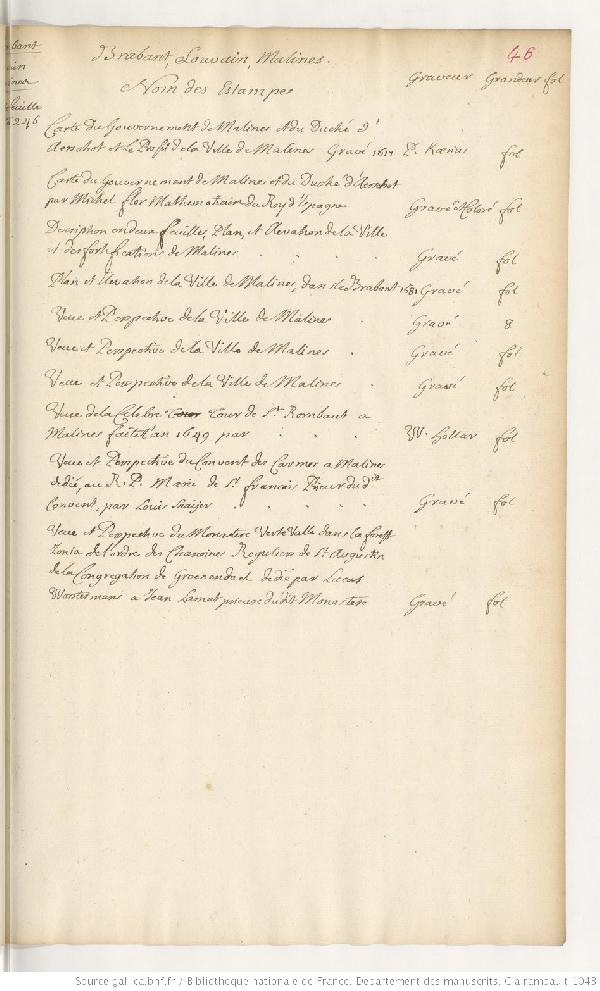 46
Brabant, Louvain, Malines.
Nom des Estampes Graveur Grandeur fol
feuille
246
Carte du Gouvernement de Malines et du Duché d'
Aerschot et le Profil de la Ville de Malines Gravé P. Kærius fol
Carte du Gouvernement de Malines et du Duché d'Aerschot
par Michel flor Mathematicien du Roy d'Espagne Gravé et Coloré fol
Description en deux feuilles, Plan, et elevation de la Ville
et des fortifications de Malines Gravé fol
Plan et elevation de la Ville de Malines, dans le Brabant 1581 Gravé fol
Veue et Perspective de la Ville de Malines Gravé 8
Veue et Perspective de la Ville de Malines Gravé fol
Veue et Perspective de la Ville de Malines Gravé fol
Veue de la Celebre Tour Tour de St. Rombaut a
Malines faite l'an 1649 par W. Hollar fol
Veue et Perspective du Convent des Carmes a Malines
dediée, au R. P. Marc de St francois Prieur dud.
Convent, par Louis Gravé fol
Veue et Perspective du Monastere Verte Valle dans la forest
Zonia de l'ordre des Chanoines Reguliers de St Augustin
de la Congregation de Groenendael dedié par Lucas
Wosterman a Jean prieur dudit Monastere Gravé fol
Source gallica.bnf.fr / Bibliothèque nationale de France. Département des manuscrits. Clairambault 1043